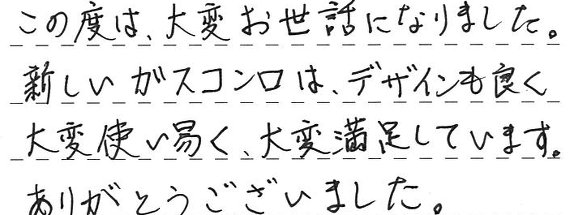 この度は、大変お世話になりました。
新しいガスコンロは、デザインも良く
大変使い易く、大変満足しています。
ありがとうございました。